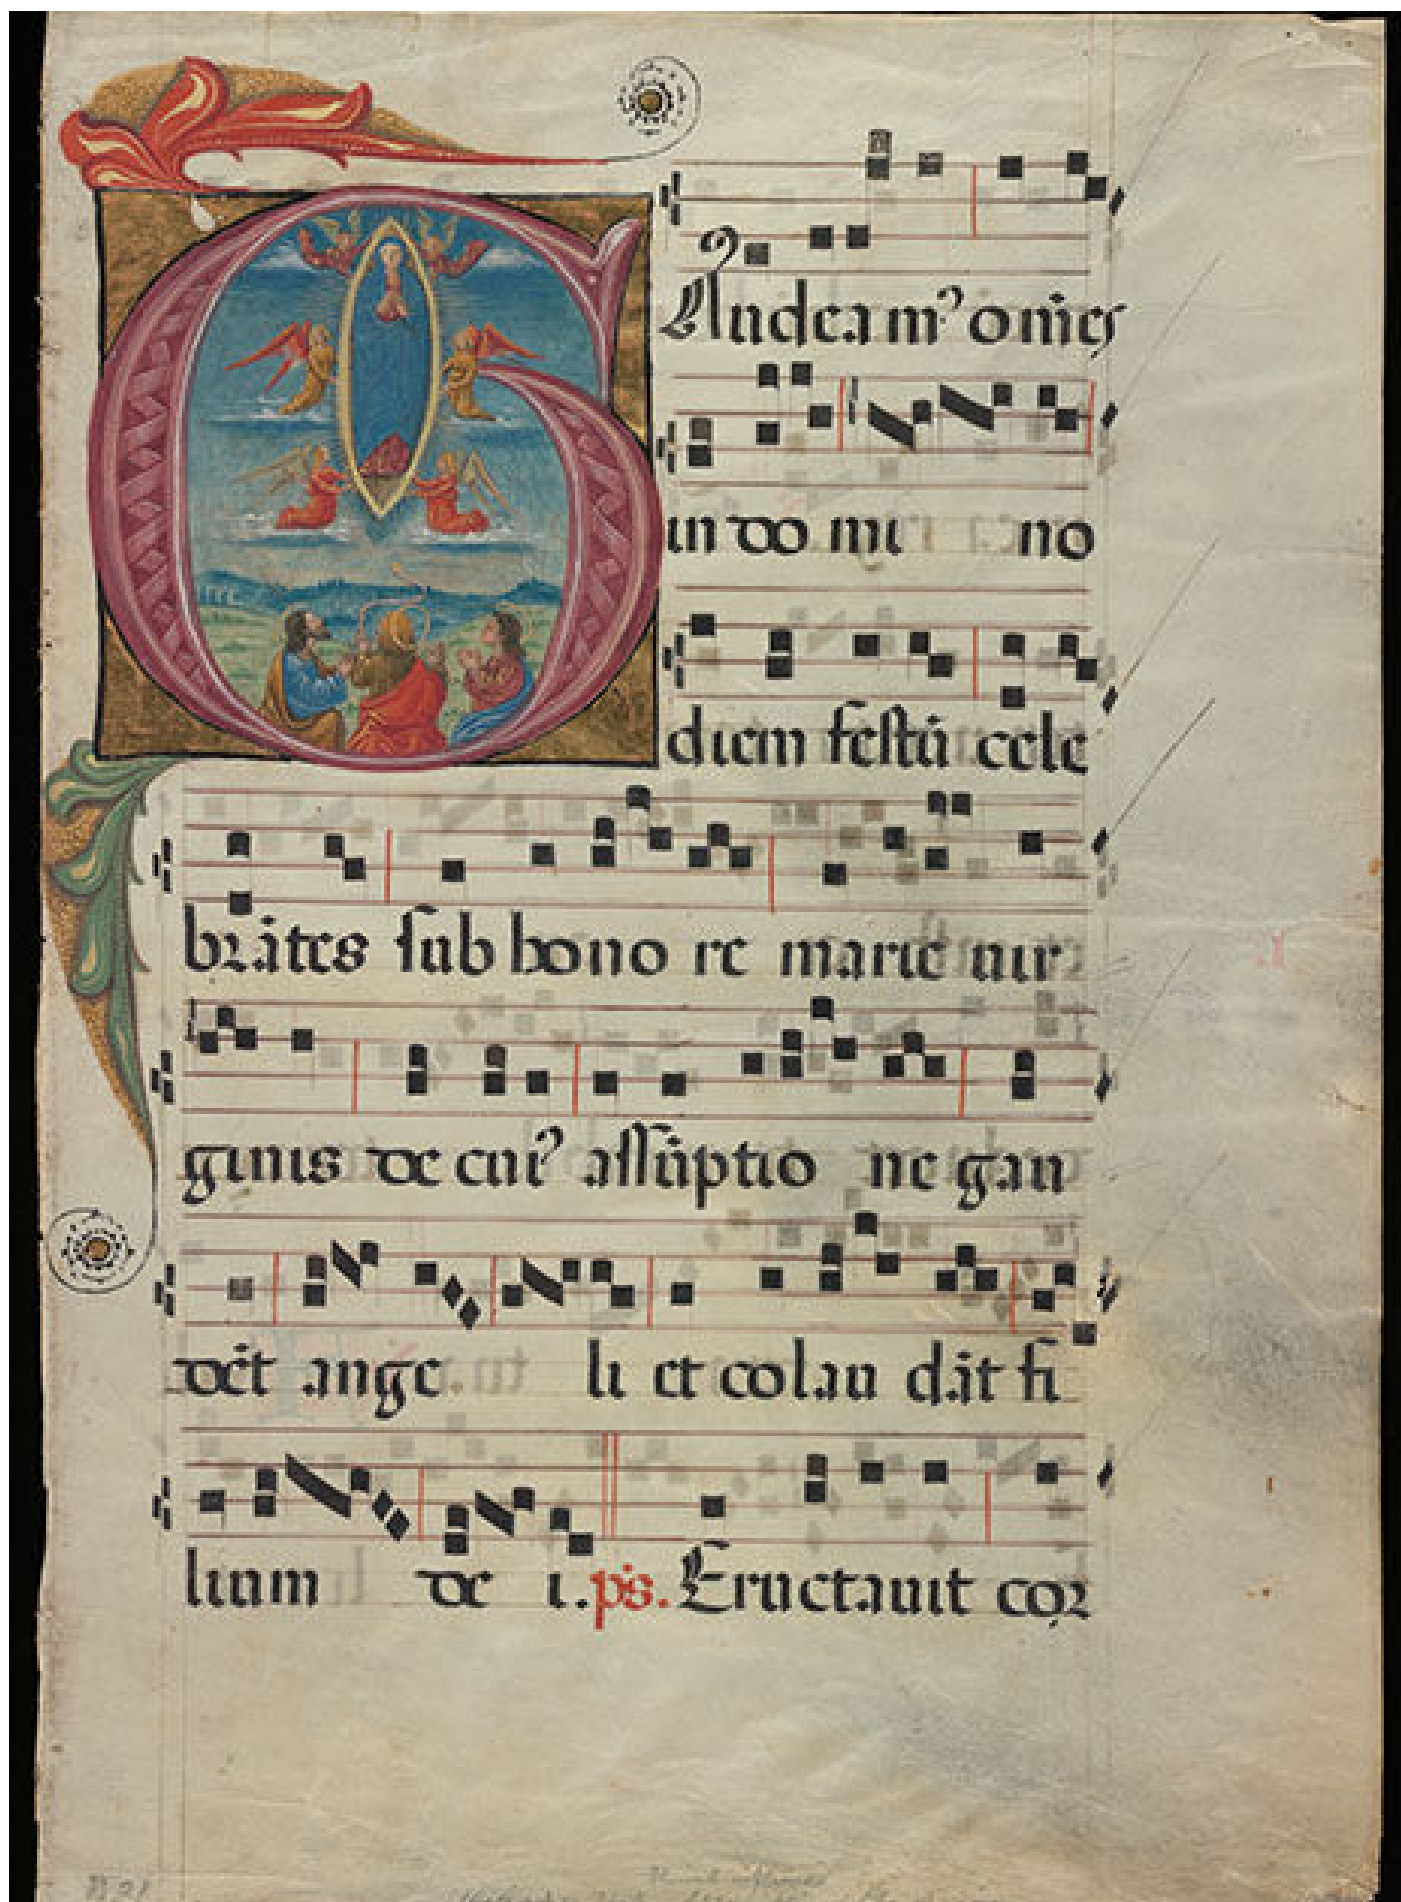 GAudeam⁹ om̄es
in do mi no
diem festū cele
brātes sub hono re marie uir
ginis de cui⁹ assūptio ne gau
dēt ange li et colau dāt fi
lium de i. ps. Eructauit cor